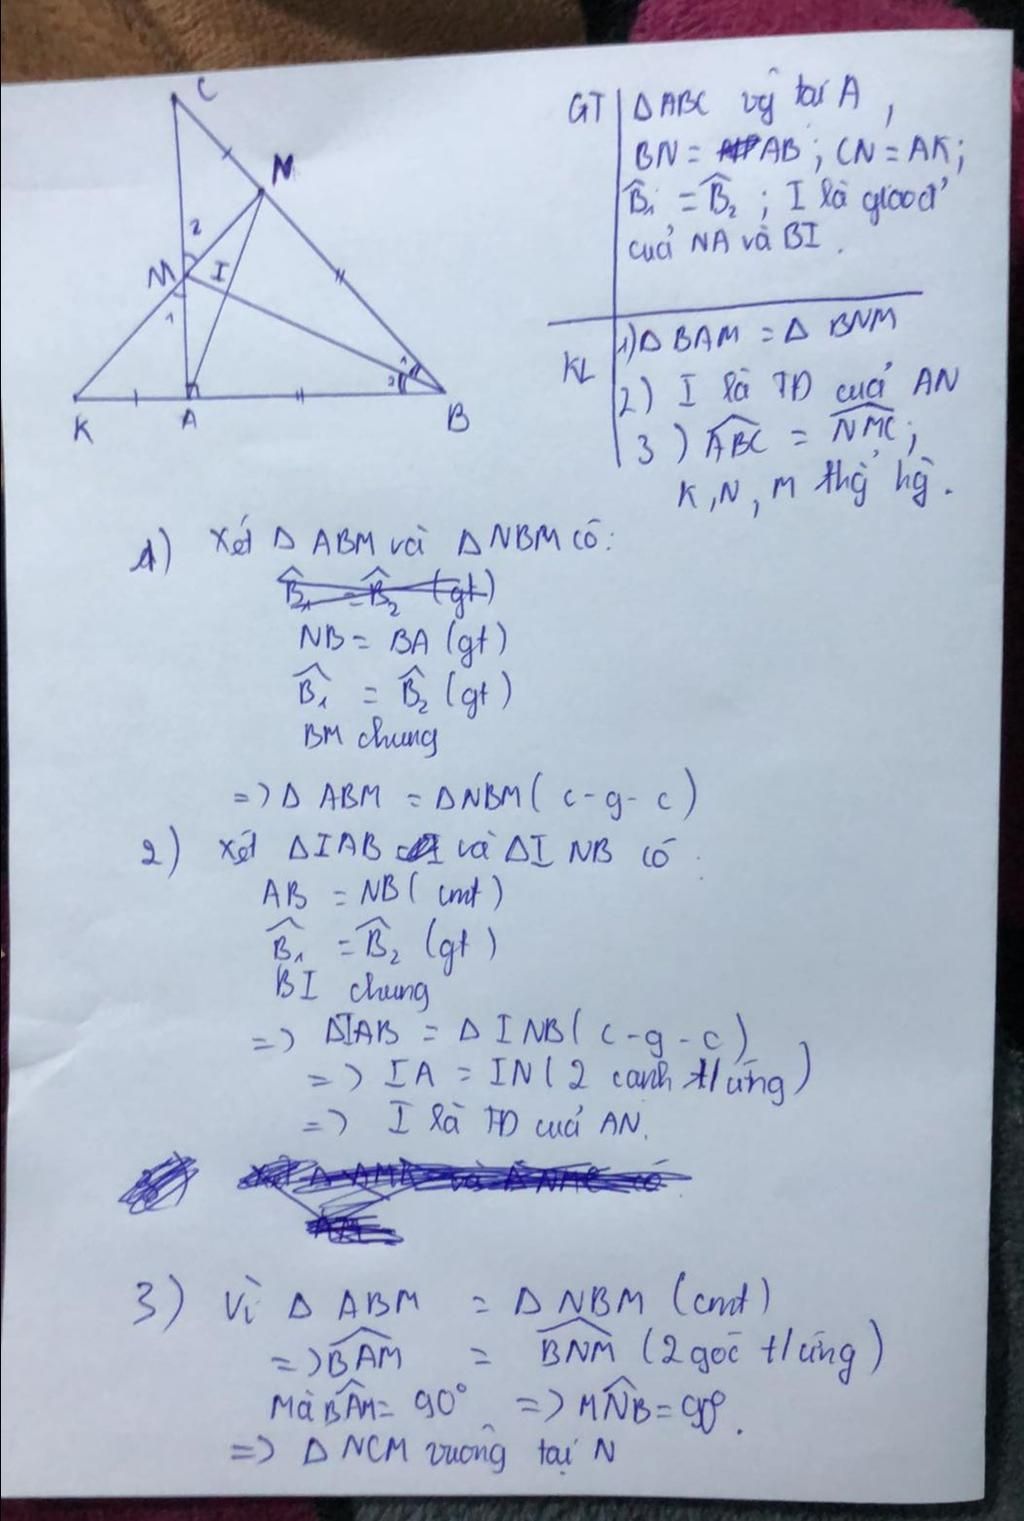 C
N
2
M
I
1
1
2
K
A
B
GT
ΔABC vg tại A,
BN = AB; CN = AK;
B̂₁ = B̂₂; I là giao đ'
của NA và BI.
KL
1) Δ BAM = Δ BNM
2) I là TĐ của AN
3) ABC = NMC;
K, N, M thg hg.
1) Xét Δ ABM và Δ NBM có:
B̂₁ = B̂₂ (gt)
NB = BA (gt)
B̂₁ = B̂₂ (gt)
BM chung
=> Δ ABM = ΔNBM (c-g-c)
2) Xét ΔIAB và ΔINB có:
AB = NB (cmt)
B̂₁ = B̂₂ (gt)
BI chung
=> ΔIAB = ΔINB (c-g-c)
=> IA = IN (2 cạnh t/ứng)
=> I là TĐ của AN.
3) Vì Δ ABM = Δ NBM (cmt)
=> BAM = BNM (2 góc t/ứng)
Mà BAM = 90° => MNB = 90°.
=> Δ NCM vuông tại N